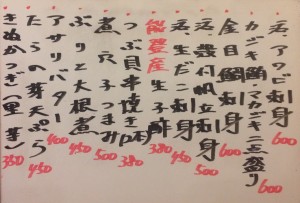 活、アワビ刺身 600
カジキ鮪・メカジキ二点盛り 600
金目鯛刺身 600
活、殻付帆立刺身 500
活、生だこ刺身 450
能登産生子酢 380
つぶ貝串焼き(2本) 380
煮穴子つまみ 500
ぶりと大根煮 450
アサリバター 400
たらの芽天ぷら 450
きぬかつぎ(里芋) 350